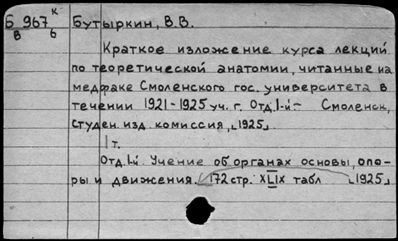 Б 967 к Бутыркин, В.В.
В б
Краткое изложение курса лекций
по теоретической анатомии, читанные на
медфаке Смоленского гос. университета в
течении 1921-1925 уч. г. Отд. I-й - Смоленск,
студен. изд. комиссия, [1925]
1 т.
Отд. I-й. Учение об органах основы, опо-
ры и движения. 172 стр. XLIX табл [1925]